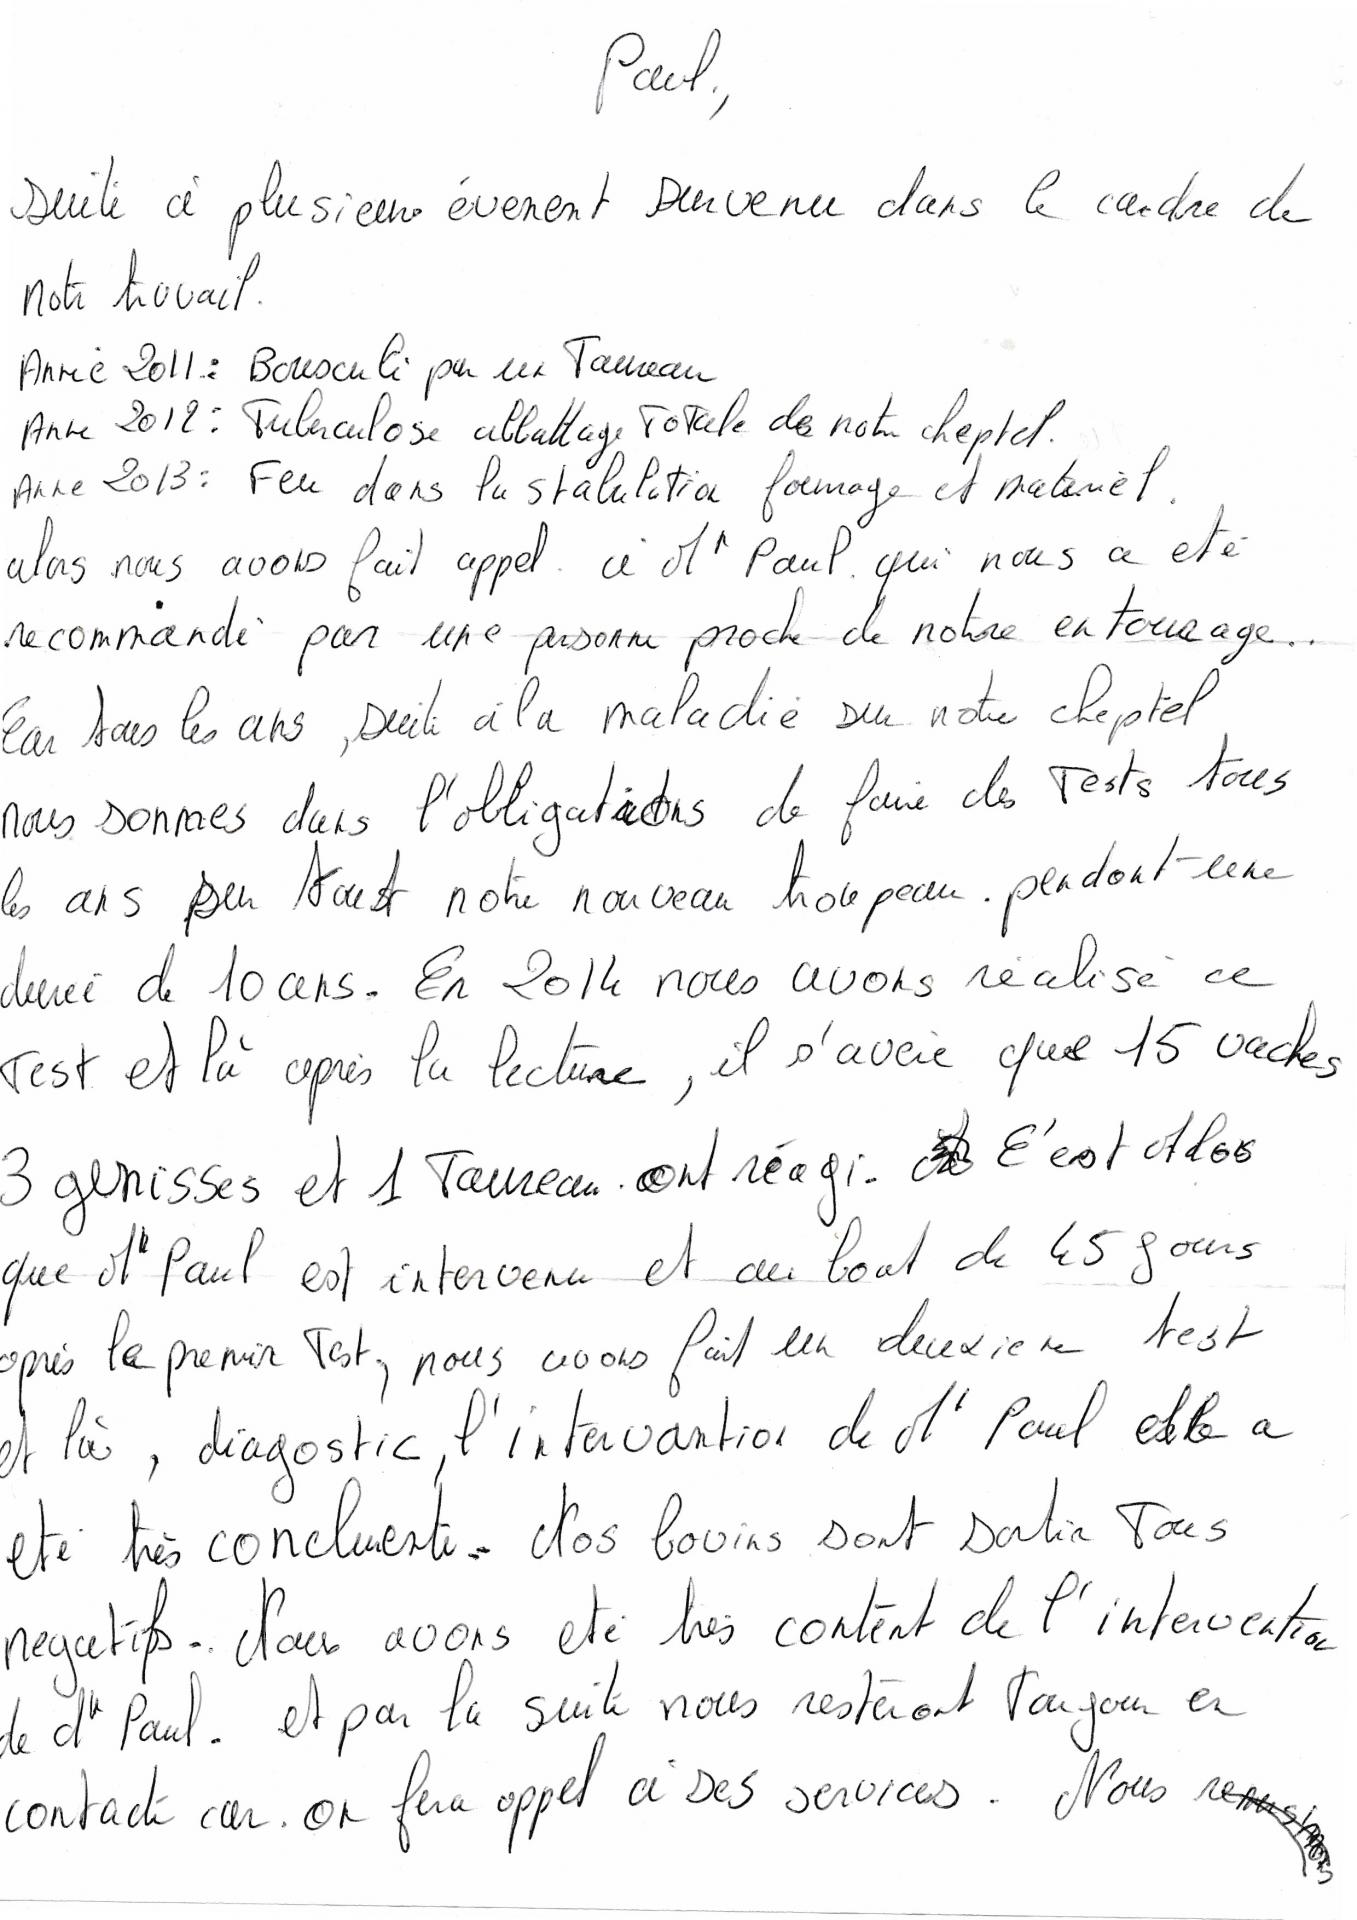 Paul.,
suite à plusieurs évenent survenu dans le cardre de
notre travail.
Année 2011 : Bousculé par un Taureau
Anne 2012 : Tuberculose abbattage Totale de notre cheptel.
Anne 2013 : Feu dans la stabulation fourrage et materiel.
alors nous avons fait appel. à Mr Paul. qui nous a eté
recommandé par une personne proche de notre entourage..
Car tous les ans, suite à la maladie sur notre cheptel
nous sommes dans l'obligations de faire des Tests tous
les ans sur tout notre nouveau troupeau. pendant-une
durée de 10 ans. En 2014 nous avons réalisé ce
Test et là après la lecture, il s'avère que 15 vaches
3 genisses et 1 Taureau ont réagi. C'est Alors
que Mr Paul est intervenu et au bout de 45 jours
après le premier Test, nous avons fait un deuxieme test
et là, diagostic, l'intervantion de Mr Paul elle a
eté très concluente. Nos bovins sont sortir Tous
negatifs.. Nous avons eté très content de l'intervention
de Mr Paul. et par la suite nous resteront Toujour en
contacte car. on fera appel à ses services. Nous